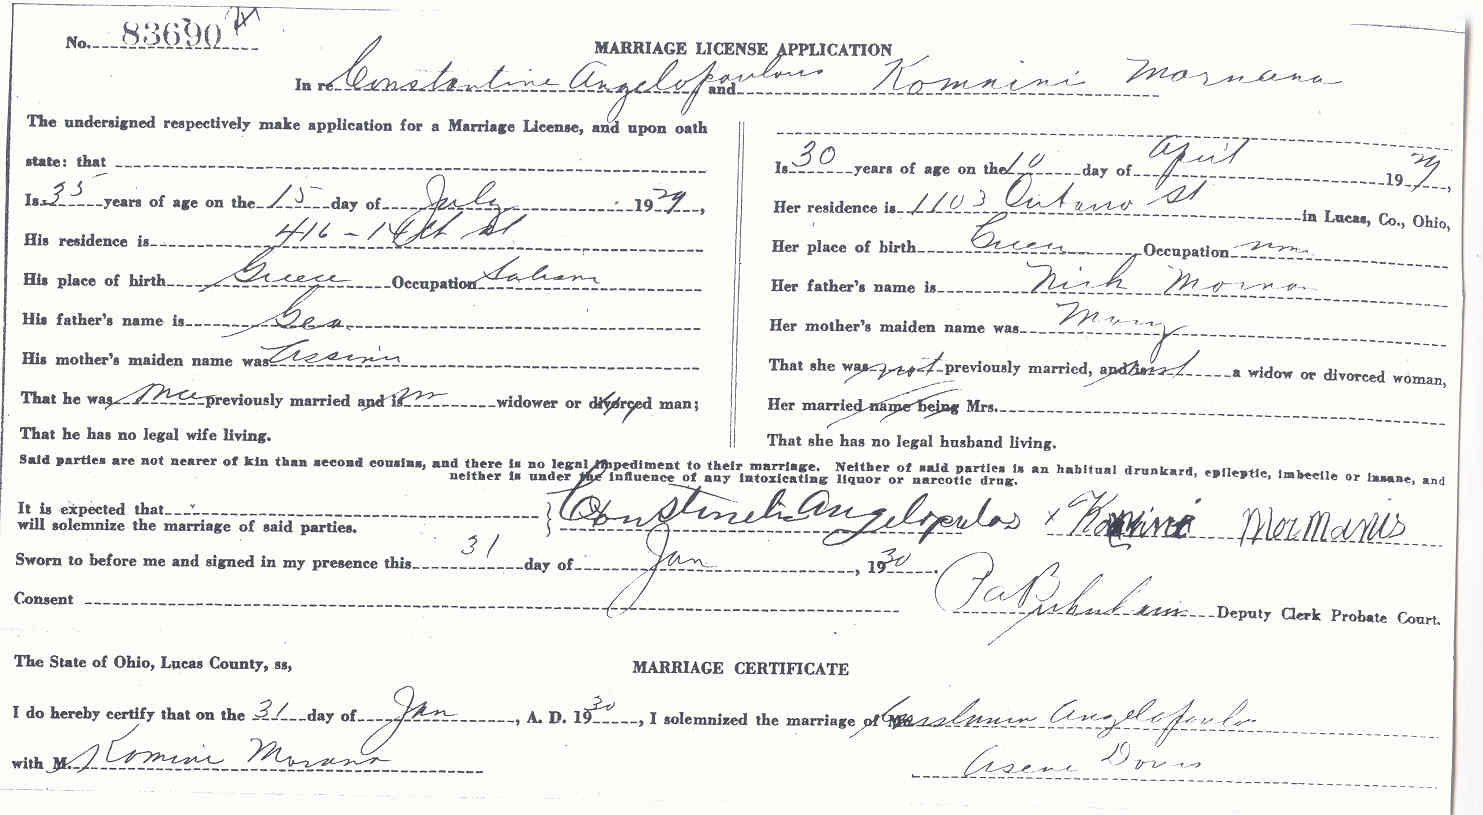 No. 83690
MARRIAGE LICENSE APPLICATION
In re Constantine Angelopoulous and Komnini
The undersigned respectively make application for a Marriage License, and upon oath
state: that
Is 35 years of age on the 15 day of July 1929,
His residence is 416 -
His place of birth Greece Occupation
His father's name is Geo.
His mother's maiden name was
That he was previously married and is widower or divorced man;
That he has no legal wife living.
Is 30 years of age on the 10 day of April 19
Her residence is 1103 Ontario St in Lucas, Co., Ohio,
Her place of birth Greece Occupation
Her father's name is Nick
Her mother's maiden name was Mary
That she was not previously married, and is not a widow or divorced woman,
Her married name being Mrs.
That she has no legal husband living.
Said parties are not nearer of kin than second cousins, and there is no legal impediment to their marriage. Neither of said parties is an habitual drunkard, epileptic, imbecile or insane, and
neither is under the influence of any intoxicating liquor or narcotic drug.
It is expected that
will solemnize the marriage of said parties.
Angelopulos x Mormanis
Sworn to before me and signed in my presence this 31 day of Jan, 1930.
Consent
Deputy Clerk Probate Court.
The State of Ohio, Lucas County, ss,
MARRIAGE CERTIFICATE
I do hereby certify that on the 31 day of Jan, A. D. 1930, I solemnized the marriage of Mr. Angelopoulo
with M. Komini